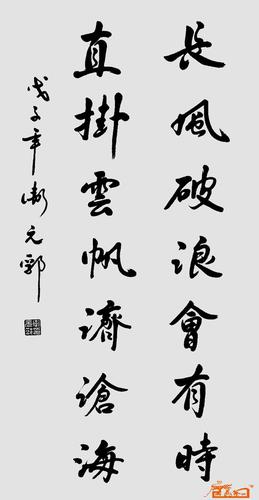 長風破浪會有時
直掛雲帆濟滄海
戊子年衛元郭